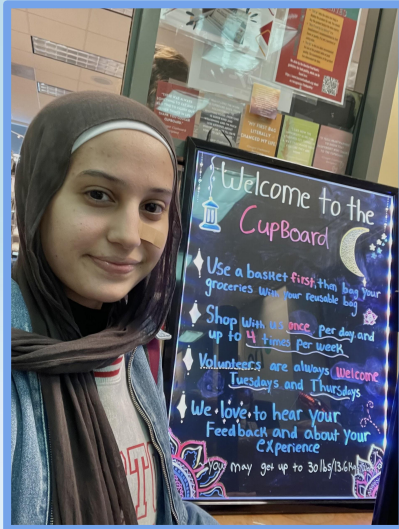 Welcome to the
CUPBOARD
Use a basket first, then bag your
groceries with your reusable bag
Shop with us once per day and
up to 4 times per week
Volunteers are always welcome
Tuesdays and Thursdays
We love to hear your
Feedback and about your
experience
You may get up to 30 lbs/13.6Kg